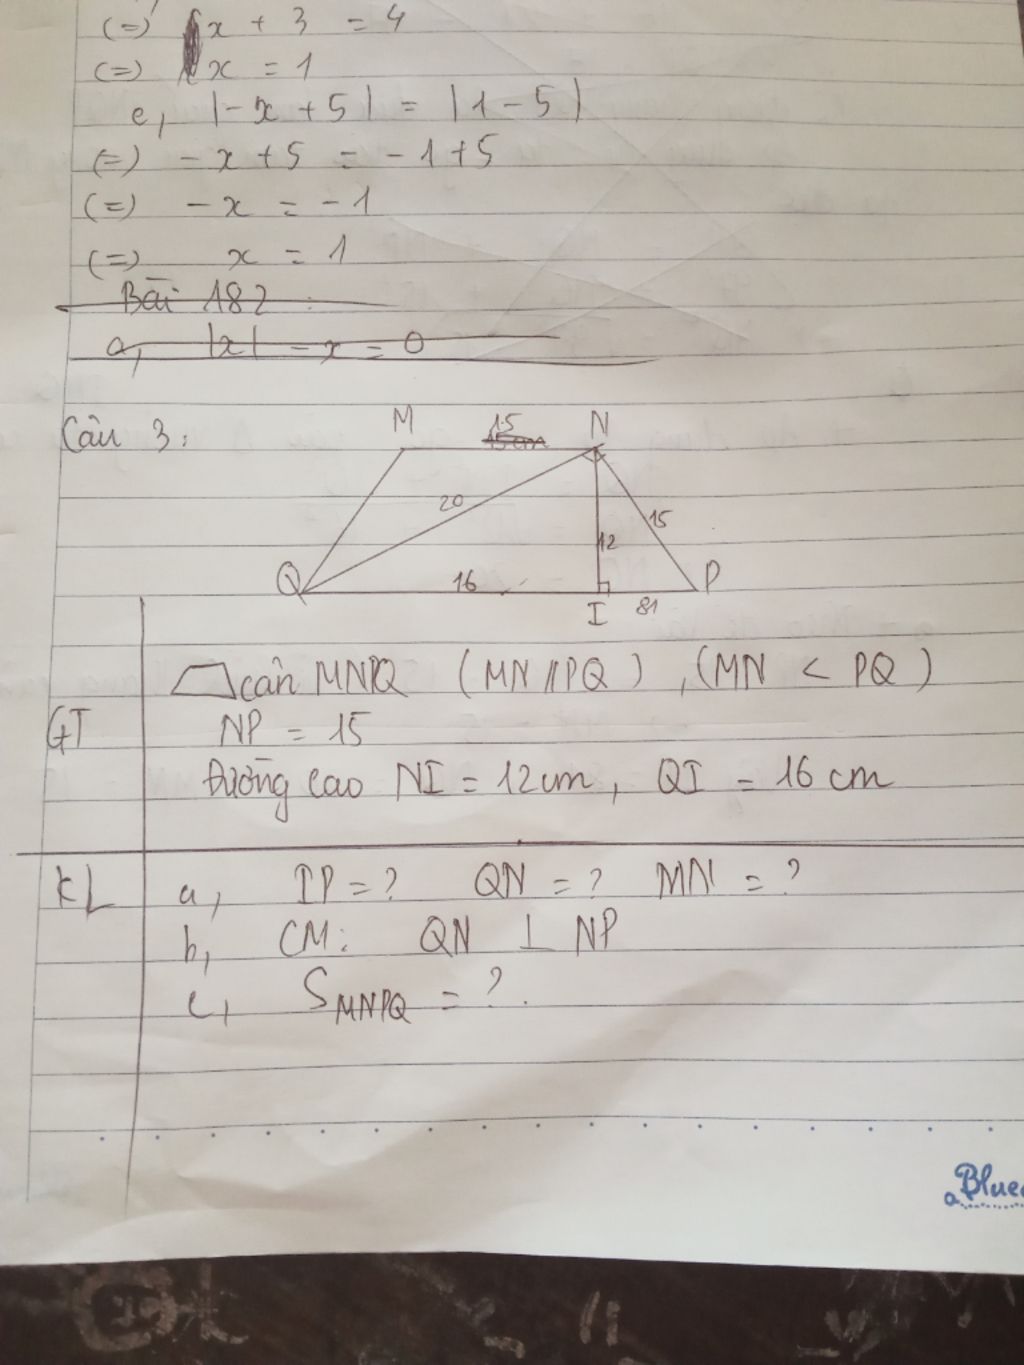 (=) x + 3 = 4
(=) x = 1
e, |-x + 5| = |1 - 5|
(=) -x + 5 = -1 + 5
(=) -x = -1
(=) x = 1
Bài 182
a, |x| - x = 0
Câu 3:
M 15 N
20
15
12
Q 16 I 81 P
cân MNPQ (MN // PQ), (MN < PQ)
GT NP = 15
Đường cao NI = 12cm, QI = 16 cm
KL a, IP = ? QN = ? MN = ?
b, CM: QN ⊥ NP
c, SMNPQ = ?.
Blue